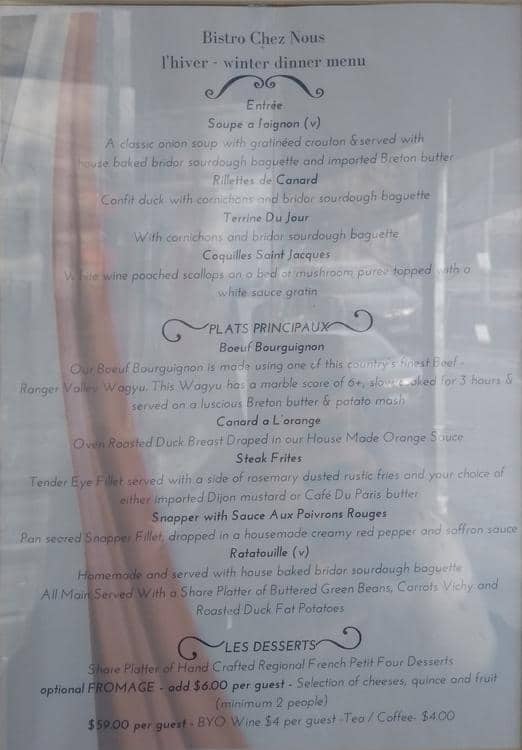 Bistro Chez Nous
l'hiver - winter dinner menu
Entrée
Soupe a l'oignon (v)
A classic onion soup with gratinéed crouton & served with
house baked bridor sourdough baguette and imported Breton butter
Rillettes de Canard
Confit duck with cornichons and bridor sourdough baguette
Terrine Du Jour
With cornichons and bridor sourdough baguette
Coquilles Saint Jacques
White wine poached scallops on a bed of mushroom puree topped with a
white sauce gratin
PLATS PRINCIPAUX
Boeuf Bourguignon
Our Boeuf Bourguignon is made using one of this country's finest Beef -
Ranger Valley Wagyu. This Wagyu has a marble score of 6+, slow cooked for 3 hours &
served on a luscious Breton butter & potato mash
Canard a L'orange
Oven Roasted Duck Breast Draped in our House Made Orange Sauce
Steak Frites
Tender Eye Fillet served with a side of rosemary dusted rustic fries and your choice of
either Imported Dijon mustard or Café Du Paris butter
Snapper with Sauce Aux Poivrons Rouges
Pan seared Snapper Fillet, drapped in a housemade creamy red pepper and saffron sauce
Ratatouille (v)
Homemade and served with house baked bridor sourdough baguette
All Main Served With a Share Platter of Buttered Green Beans, Carrots Vichy and
Roasted Duck Fat Potatoes
LES DESSERTS
Share Platter of Hand Crafted Regional French Petit Four Desserts
optional FROMAGE - add $6.00 per guest - Selection of cheeses, quince and fruit
(minimum 2 people)
$59.00 per guest - BYO Wine $4 per guest -Tea / Coffee- $4.00